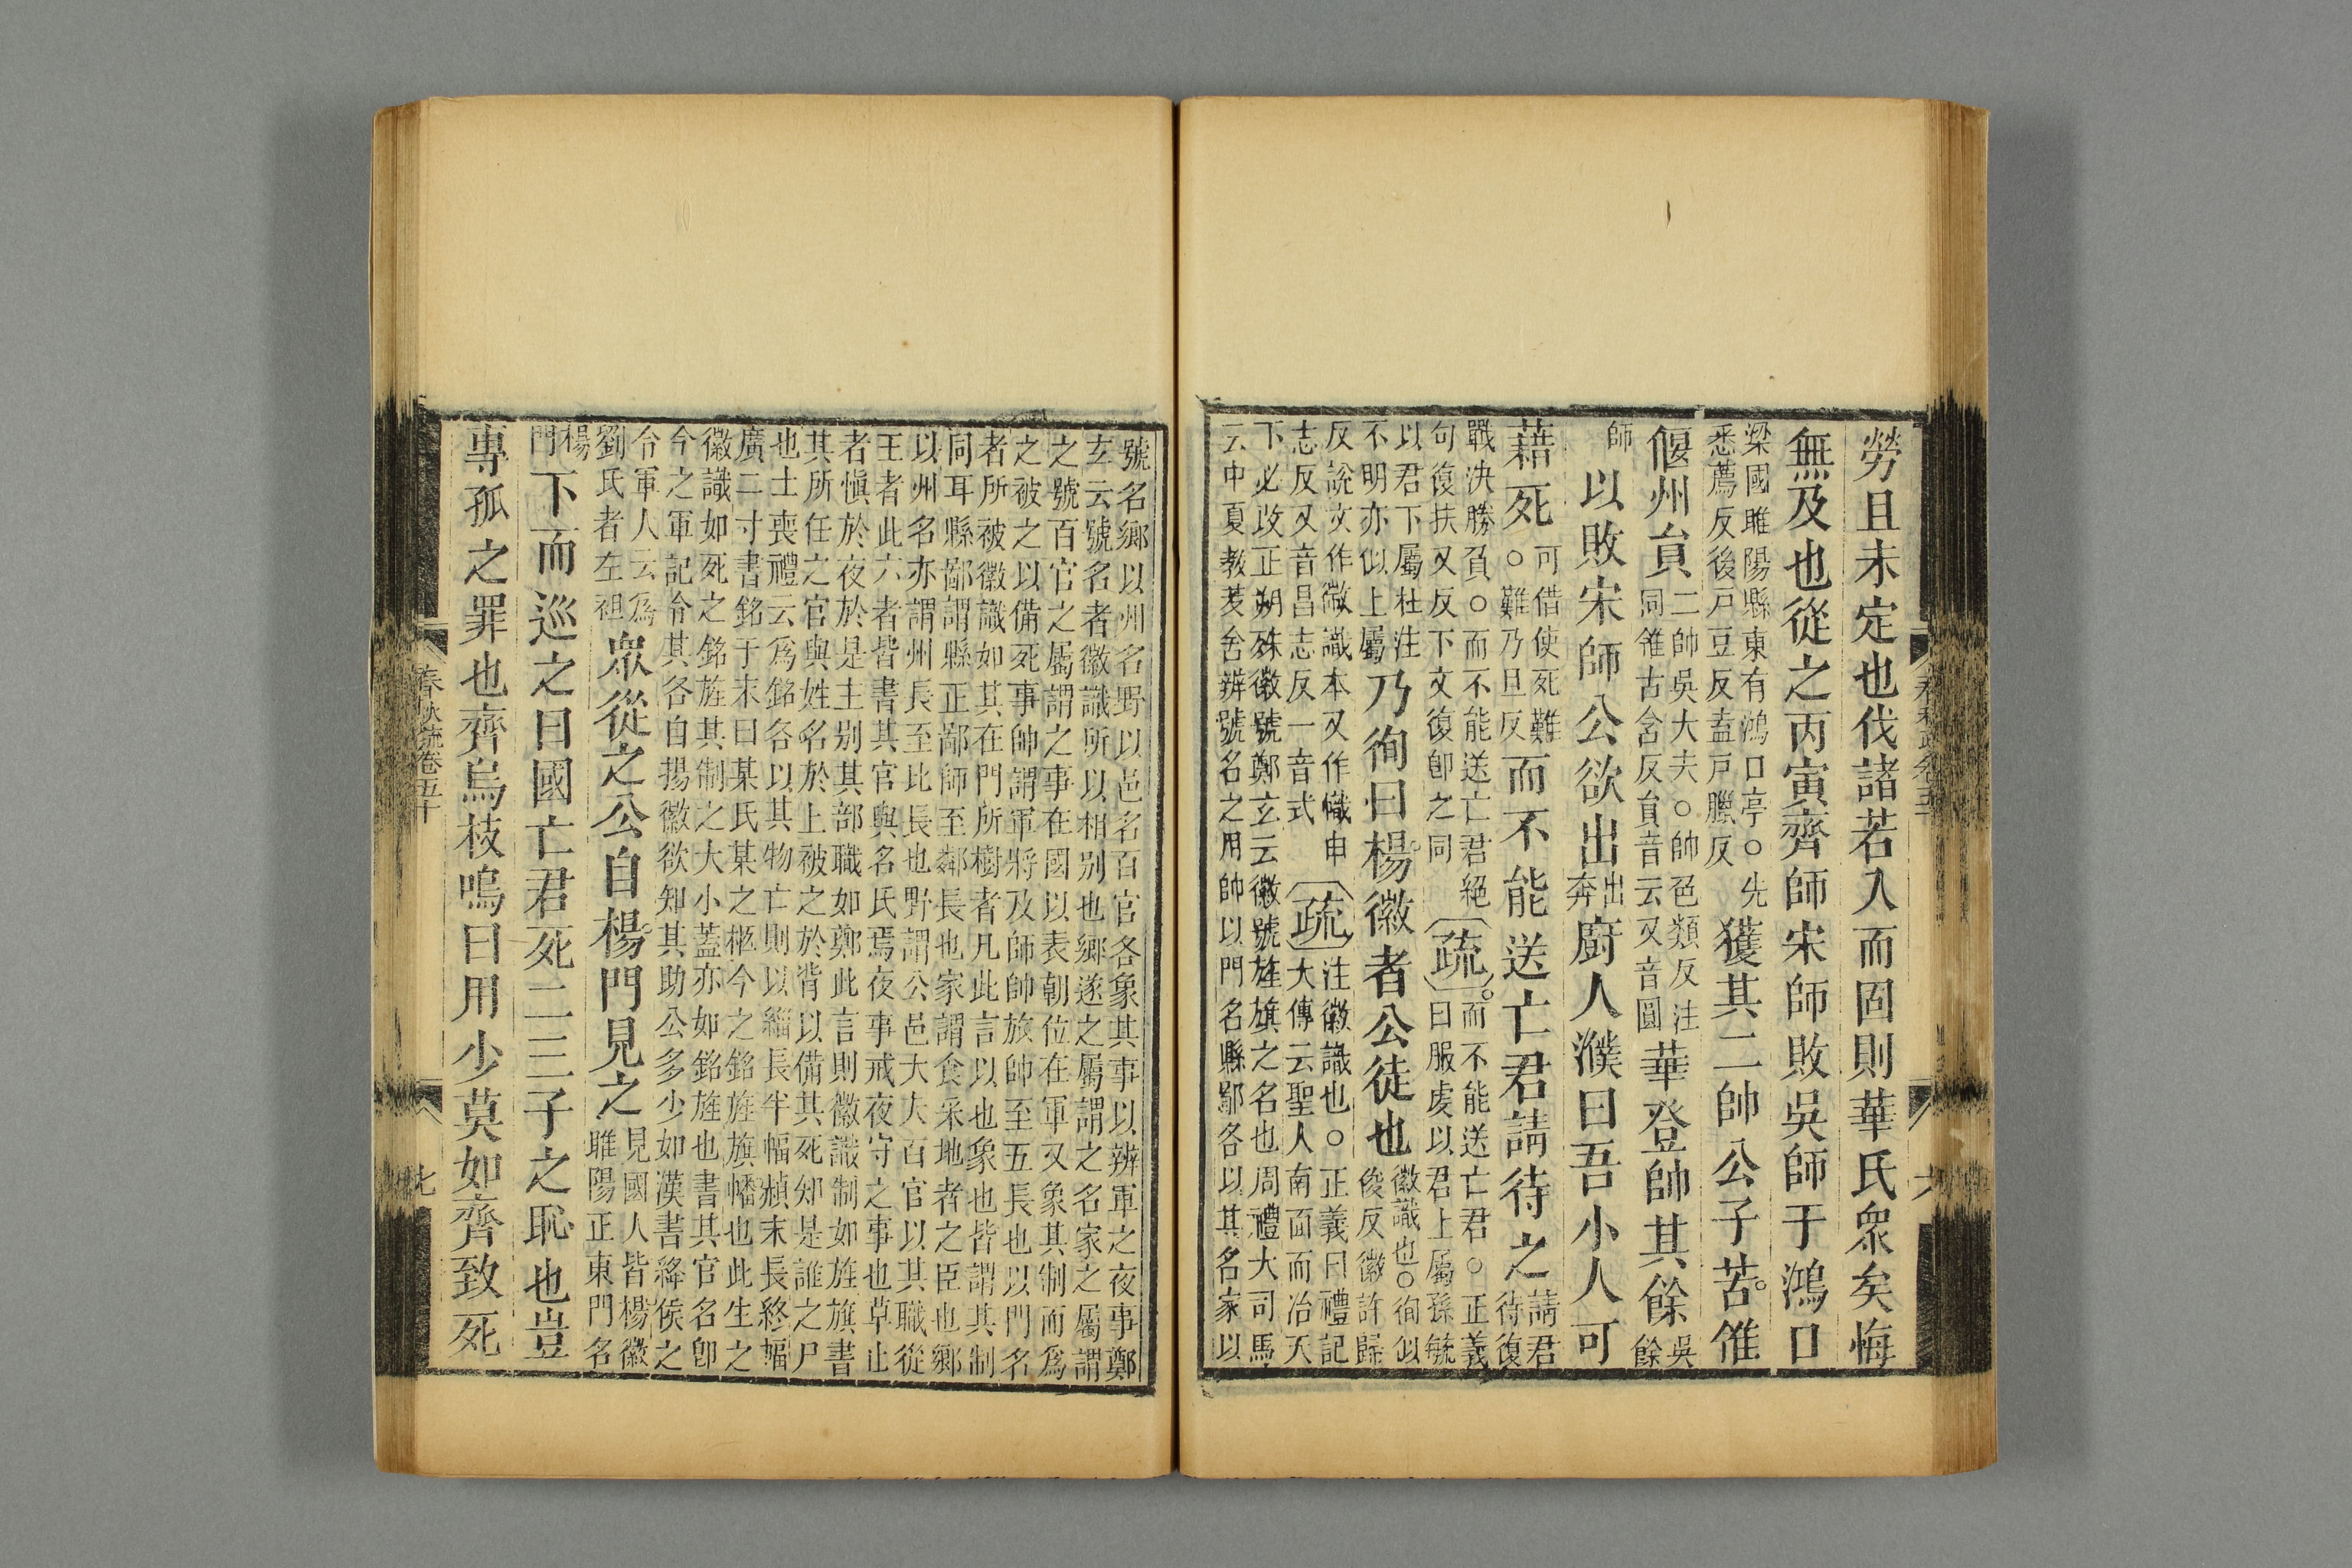 勞且未定也伐諸若入而固則華氏衆矣悔
無及也從之丙寅齊師宋師敗吳師于鴻口
梁國睢陽縣東有鴻口亭○先
悉薦反後戸豆反盍戸臘反
獲其二帥公子苦雂
偃州員
二帥吳大夫○帥色類反注
同雂古含反員音云又音圓
華登帥其餘
吳
餘
師
以敗宋師公欲出
出
奔
廚人濮曰吾小人可
藉死
可借使死難
○難乃旦反
而不能送亡君請待之
請君
待復
戰決勝負○而不能送亡君絕
句復扶又反下文復卽之同
疏
而不能送亡君○正義
曰服虔以君上屬孫毓
以君下屬杜注
不明亦似上屬
乃徇曰楊徽者公徒也
徽識也○徇似
俊反徽許歸
反說文作微識本又作幟申
志反又音昌志反一音式
疏
注徽識也○正義曰禮記
大傳云聖人南面而治天
下必改正朔殊徽號鄭玄云徽號旌旗之名也周禮大司馬
云中夏教茇舍辨號名之用帥以門名縣鄙各以其名家以
號名鄉以州名野以邑名百官各象其事以辨軍之夜事鄭
玄云號名者徽識所以相別也鄉遂之屬謂之名家之屬謂
之號百官之屬謂之事在國以表朝位在軍又象其制而爲
之被之以備死事帥謂軍將及師帥旅帥至五長也以門名
者所被徽識如其在門所樹者凡此言以也象也皆謂其制
同耳縣鄙謂縣正鄙師至鄰長也家謂食采地者之臣也鄉
以州名亦謂州長至比長也野謂公邑大夫百官以其職從
王者此六者皆書其官與名氏焉夜事戒夜守之事也草止
者愼於夜於是主別其部職如鄭此言則徽識制如旌旗書
其所任之官與姓名於上被之於背以備其死知是誰之尸
也士喪禮云爲銘各以其物亡則以緇長半幅赬末長終幅
廣二寸書銘于末曰某氏某之柩今之銘旌旗幡也此生之
徽識如死之銘旌其制之大小蓋亦如銘旌也書其官名卽
今之軍記令其各自揚徽欲知其助公多少如漢書絳侯之
令軍人云爲
劉氏者左袒
衆從之公自楊門見之
見國人皆楊徽
睢陽正東門名
楊
門
下而巡之曰國亡君死二三子之恥也豈
專孤之罪也齊烏枝鳴曰用少莫如齊致死
春秋疏卷五十
七